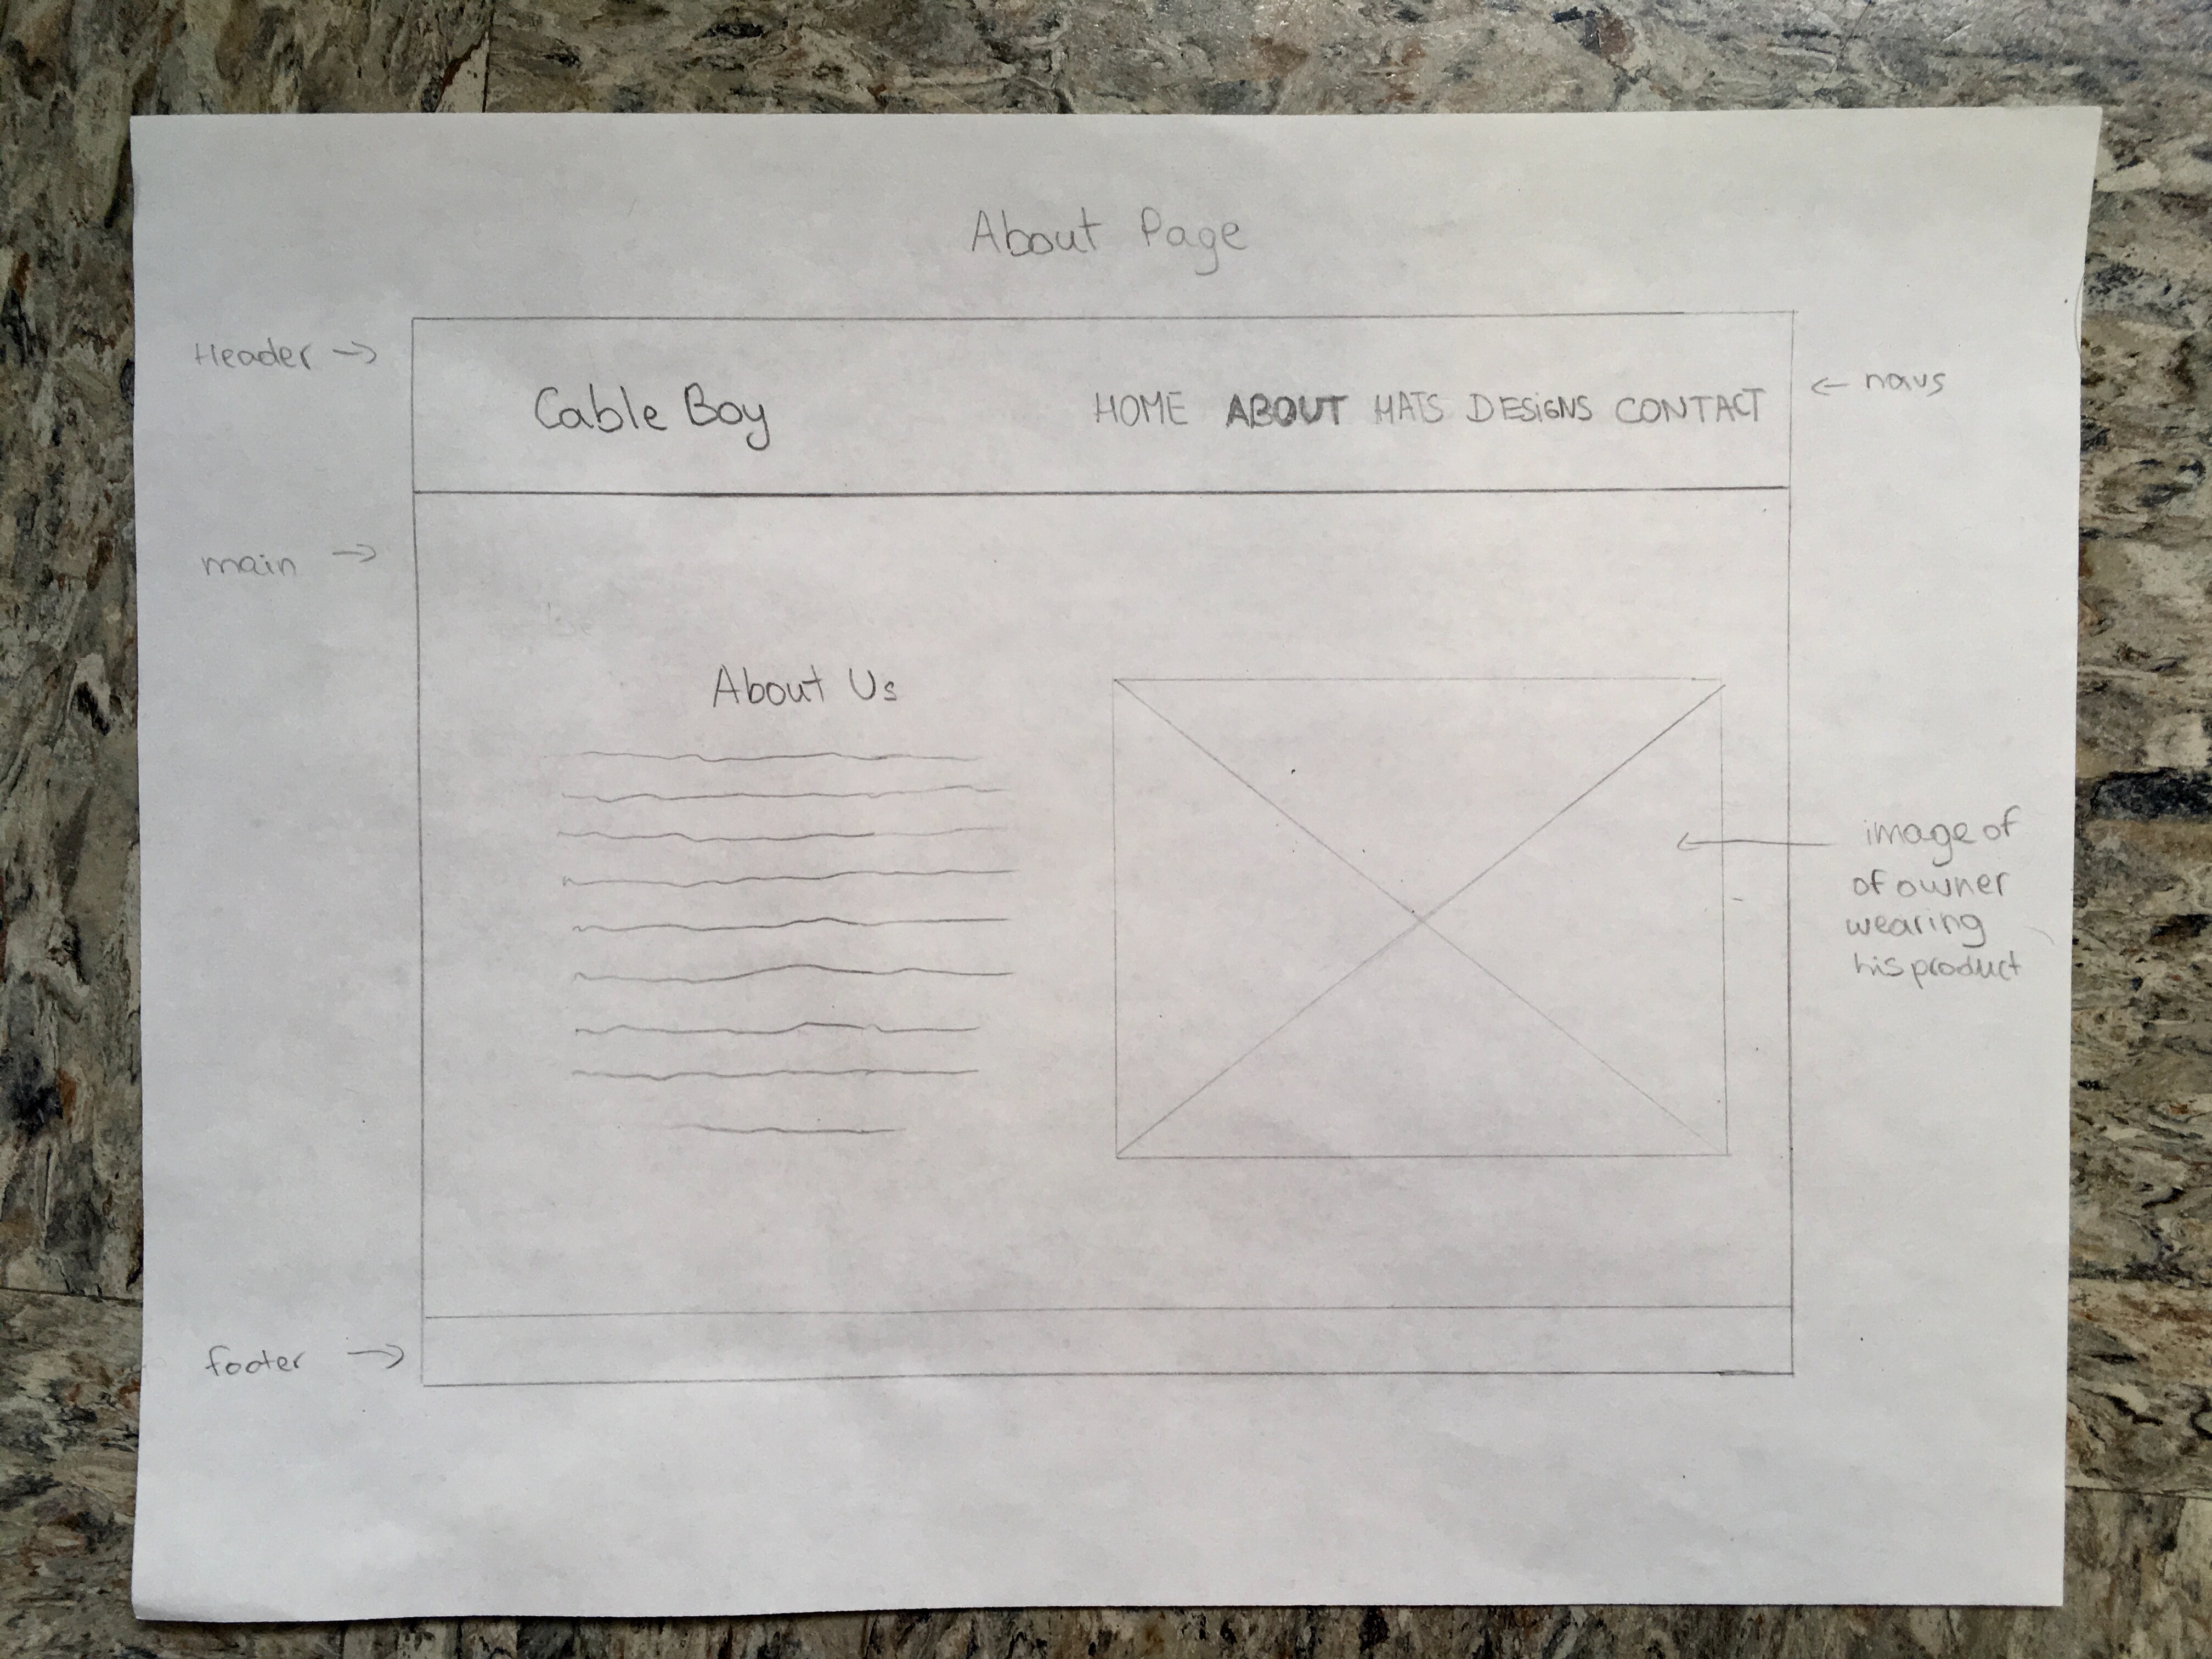 About Page
Header →
Cable Boy
HOME ABOUT HATS DESIGNS CONTACT
← navs
main →
About Us
image of
of owner
wearing
his product
footer →